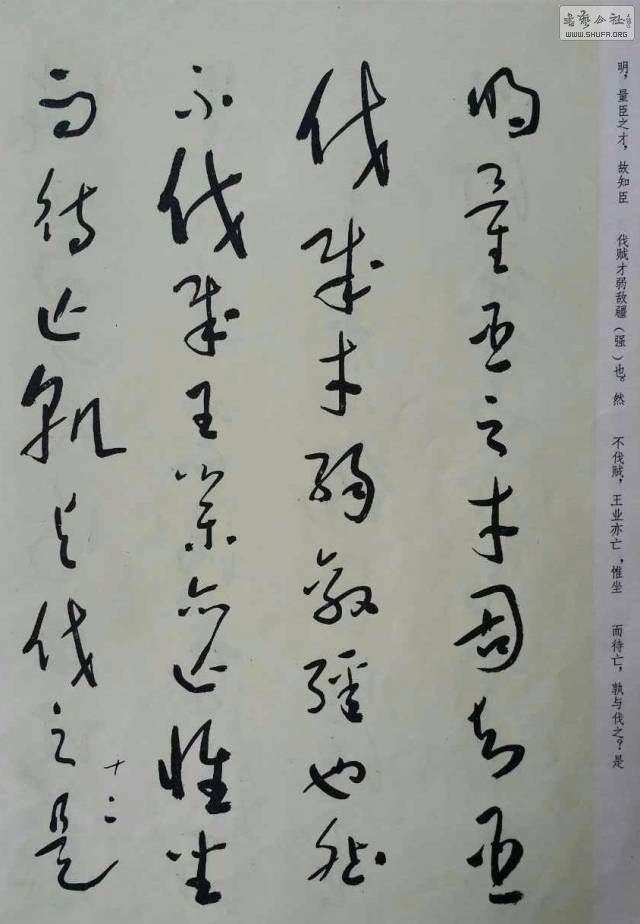 书艺公社
WWW.SHUFA.ORG
明，量臣之才，故知臣 伐贼才弱敌疆（强）也。然 不伐贼，王业亦亡，惟坐 而待亡，孰与伐之？是
明量臣之才固知臣
伐賊才弱敵疆也然
不伐賊王業亦亡惟坐
而待亡孰与伐之是
十二